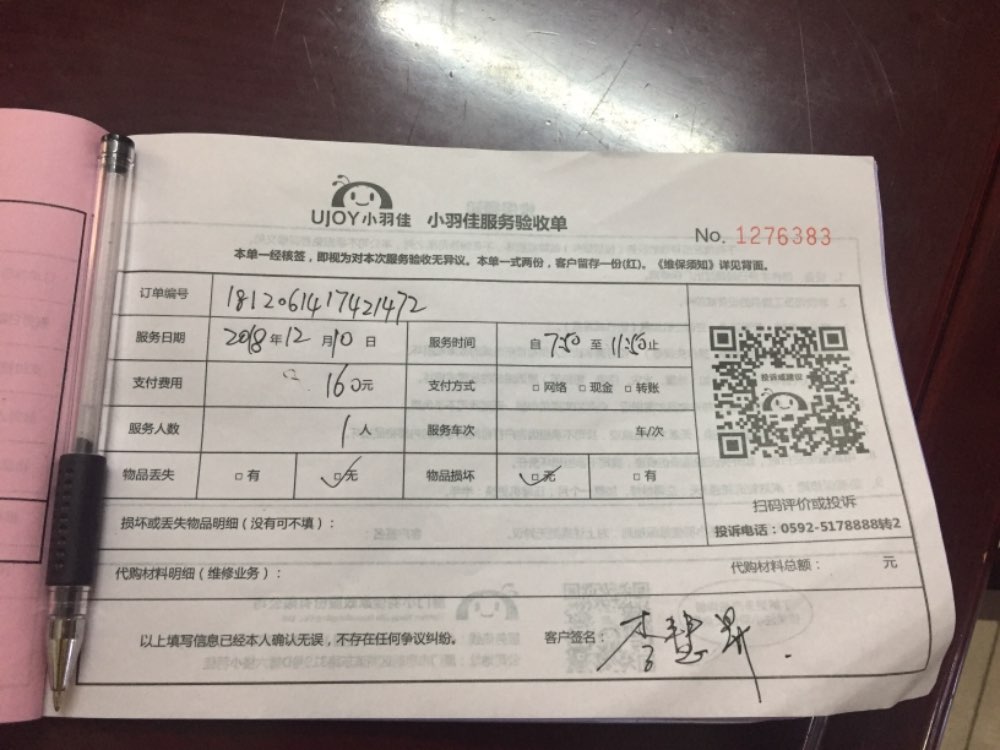 UJOY小羽佳 小羽佳服务验收单
No. 1276383
本单一经核签，即视为对本次服务验收无异议。本单一式两份，客户留存一份(红)。《维保须知》详见背面。
订单编号 1812061417421472
服务日期 2018年12月10日 服务时间 自7:50至11:50止
支付费用 160元 支付方式 □网络 □现金 □转账
服务人数 1人 服务车次 车/次
物品丢失 □有 ☑无 物品损坏 ☑无 □有
投诉或建议
扫码评价或投诉
投诉电话：0592-5178888转2
损坏或丢失物品明细（没有可不填）：
代购材料明细（维修业务）： 代购材料总额： 元
以上填写信息已经本人确认无误，不存在任何争议纠纷。 客户签名：